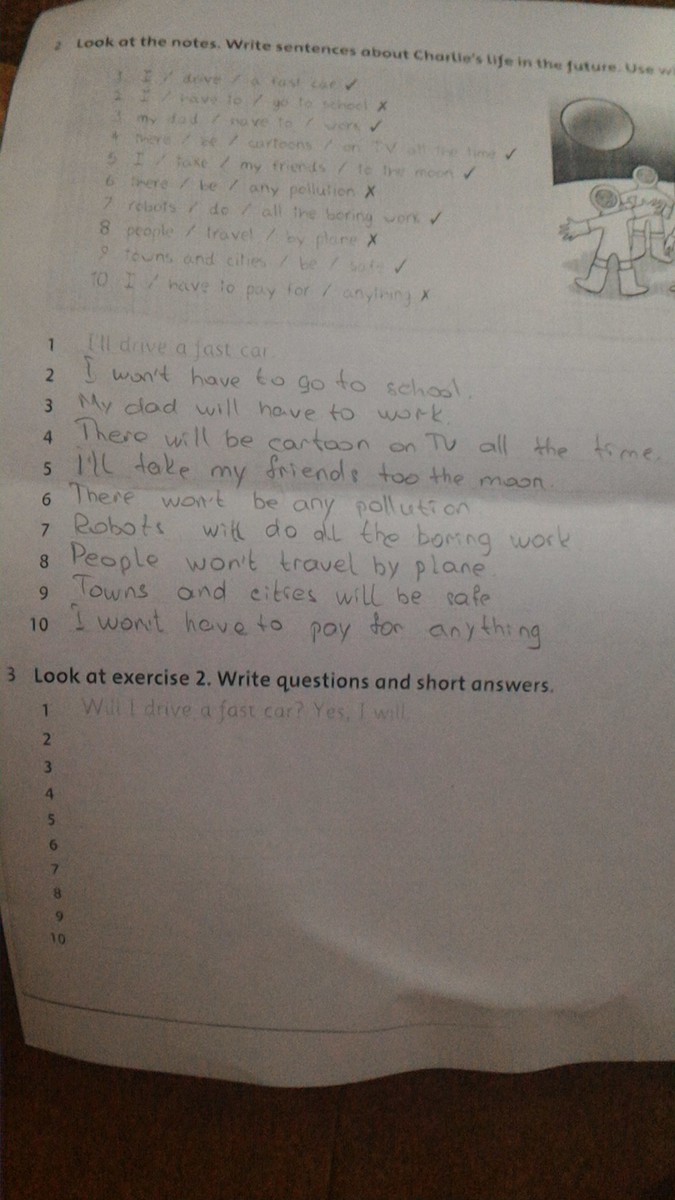 2 Look at the notes. Write sentences about Charlie's life in the future. Use
1 I / drive / a fast car ✓
2 I / have to / go to school ✗
3 my dad / have to / work ✓
4 there / be / cartoons / on TV all the time ✓
5 I / take / my friends / to the moon ✓
6 there / be / any pollution ✗
7 robots / do / all the boring work ✓
8 people / travel / by plane ✗
9 towns and cities / be / safe ✓
10 I / have to pay for / anything ✗
1 I'll drive a fast car.
2 I won't have to go to school.
3 My dad will have to work.
4 There will be cartoon on TV all the time.
5 I'll take my friends too the moon.
6 There won't be any pollution
7 Robots will do all the boring work
8 People won't travel by plane.
9 Towns and cities will be safe
10 I won't have to pay for anything
3 Look at exercise 2. Write questions and short answers.
1 Will I drive a fast car? Yes, I will.
2
3
4
5
6
7
8
9
10